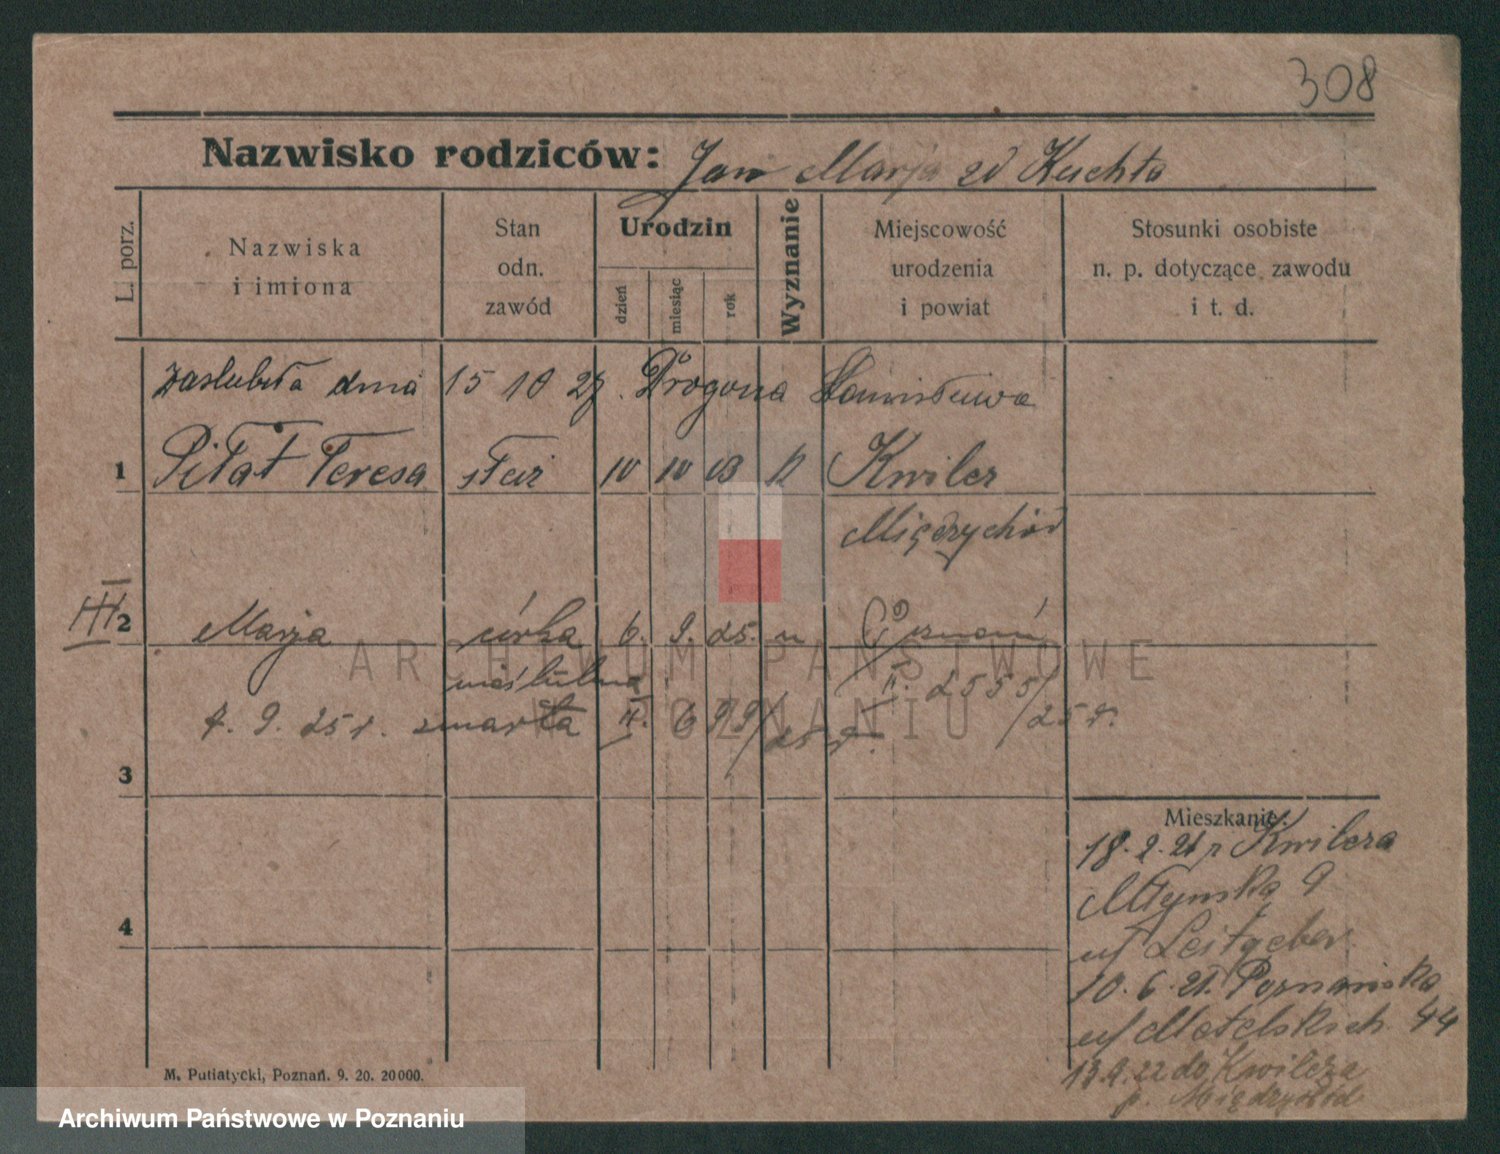 308
Nazwisko rodziców: Jan Marja zd Kuchta
L. porz.
Nazwiska i imiona
Stan odn. zawód
Urodzin
dzień
miesiąc
rok
Wyznanie
Miejscowość urodzenia i powiat
Stosunki osobiste n. p. dotyczące zawodu i t. d.
zaslubiła dnia 15 10 27. Drogona Stanisława
1 Piłat Teresa służ 10 10 03 k Kwilcz
Międzychód
III 2 Marja córka 6. 9. 25. n Poznań
nieślubna II. 2555/25 r.
7. 9. 25 r. zmarła II. 699/25 r.
3
Mieszkanie:
18. 2. 21 r Kwilcza
Młyńska 9
u/ Leitgeber
4
10. 6. 21. Poznańska
u/ Motelskich 44
13.9.22 do Kwilcza
p. Międzychód
M. Putiatycki, Poznań. 9. 20. 20000.
ARCHIWUM PAŃSTWOWE
W POZNANIU
Archiwum Państwowe w Poznaniu